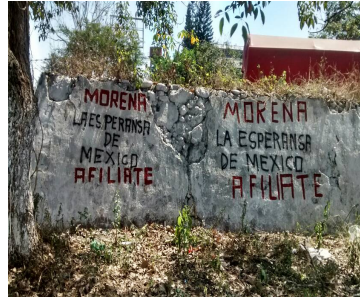 MORENA
LA ESPERANSA
DE
MEXICO
AFILIATE
MORENA
LA ESPERANSA
DE MEXICO
AFILIATE